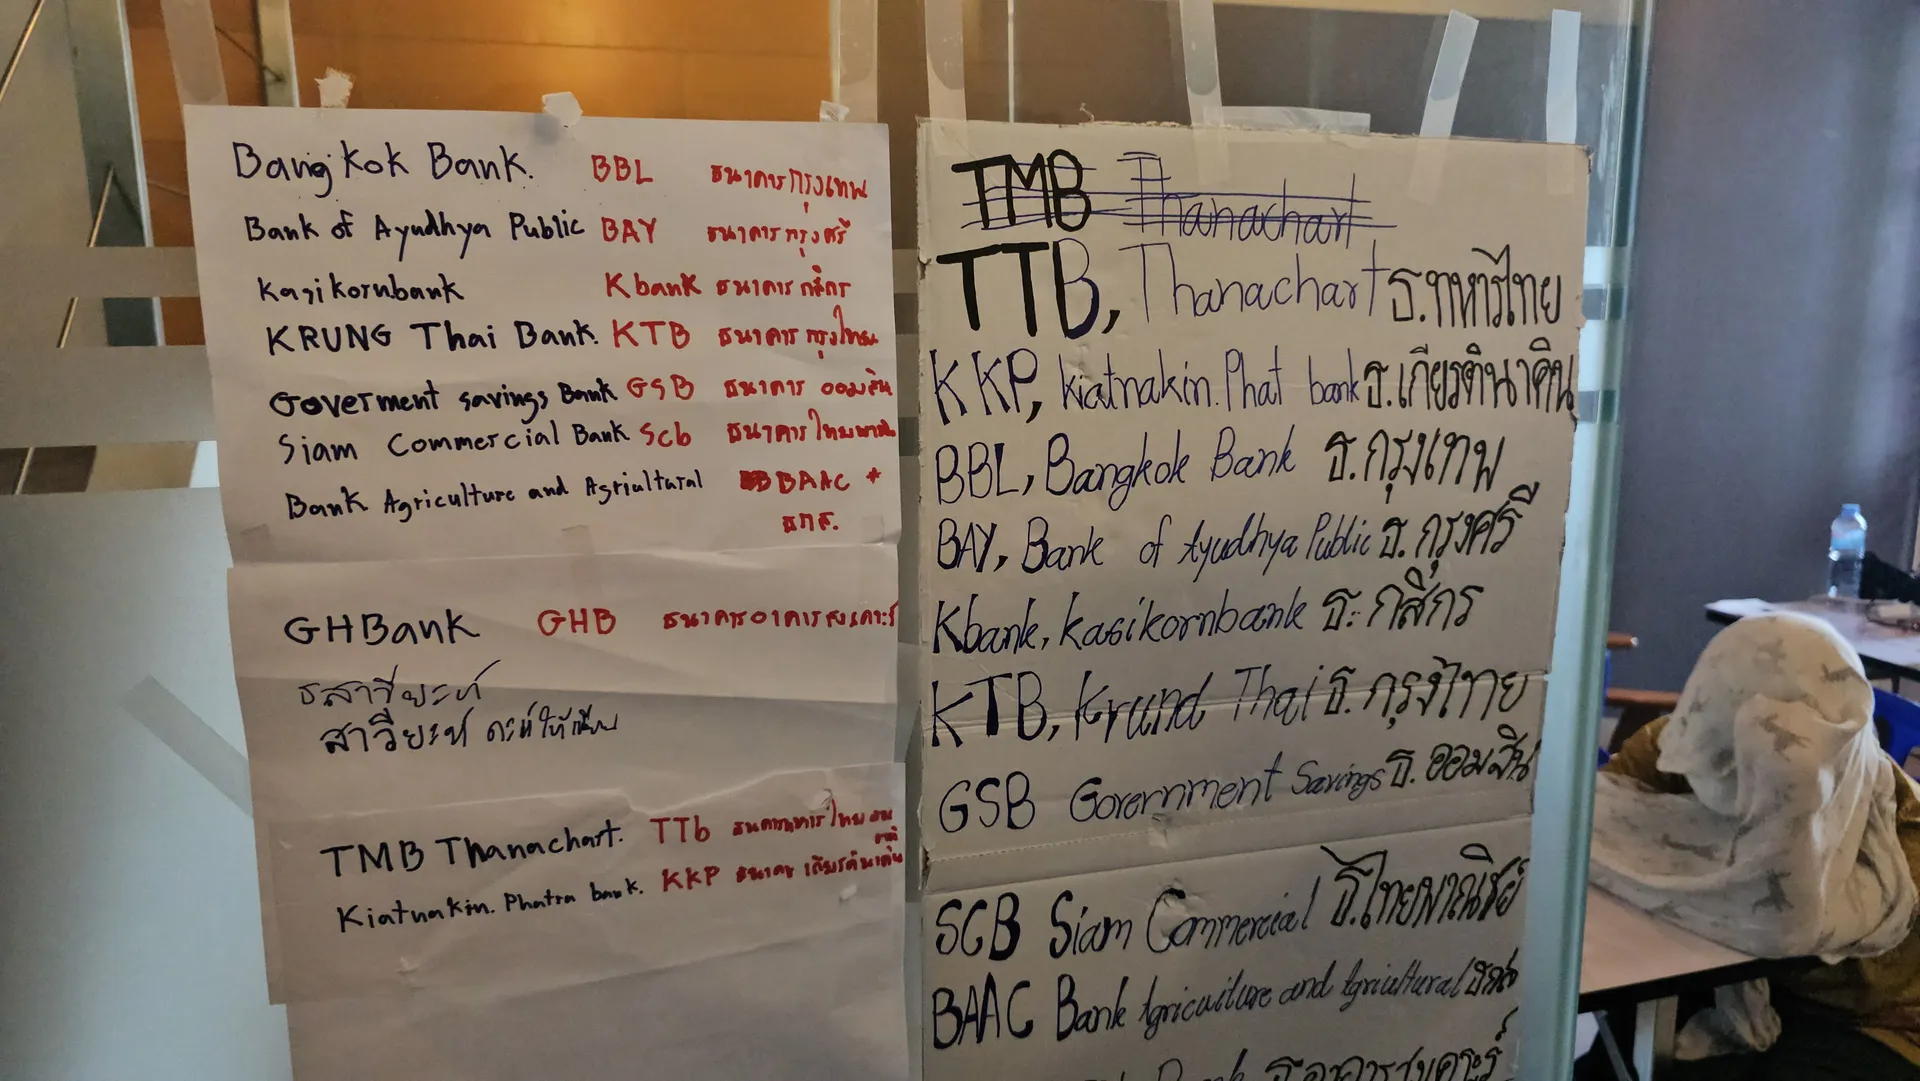 Bangkok Bank. BBL ธนาคารกรุงเทพ
Bank of Ayudhya Public BAY ธนาคารกรุงศรี
Kasikornbank Kbank ธนาคารกสิกร
KRUNG Thai Bank. KTB ธนาคารกรุงไทย
Goverment savings Bank GSB ธนาคาร ออมสิน
Siam Commercial Bank Scb ธนาคารไทยพาณิ
Bank Agriculture and Agriultural BAAC *
ธกส.
GHBank GHB ธนาคารอาคารสงเคราะห์
TMB Thanachart. TTb ธนาคารทหารไทยธน
ชาติ
Kiatnakin. Phatra bank. KKP ธนาคาร เกียรตินาคิน
TMB Thanachart
TTB, Thanachart ธ.ทหารไทย
KKP, Kiatnakin. Phat bank ธ.เกียรตินาคิน
BBL, Bangkok Bank ธ.กรุงเทพ
BAY, Bank of Ayudhya Public ธ.กรุงศรี
Kbank, Kasikornbank ธ.กสิกร
KTB, Krund Thai ธ.กรุงไทย
GSB Government Savings ธ.ออมสิน
SCB Siam Commercial ธ.ไทยพาณิชย์
BAAC Bank Agriculture and Agricultural ธกส
Bank